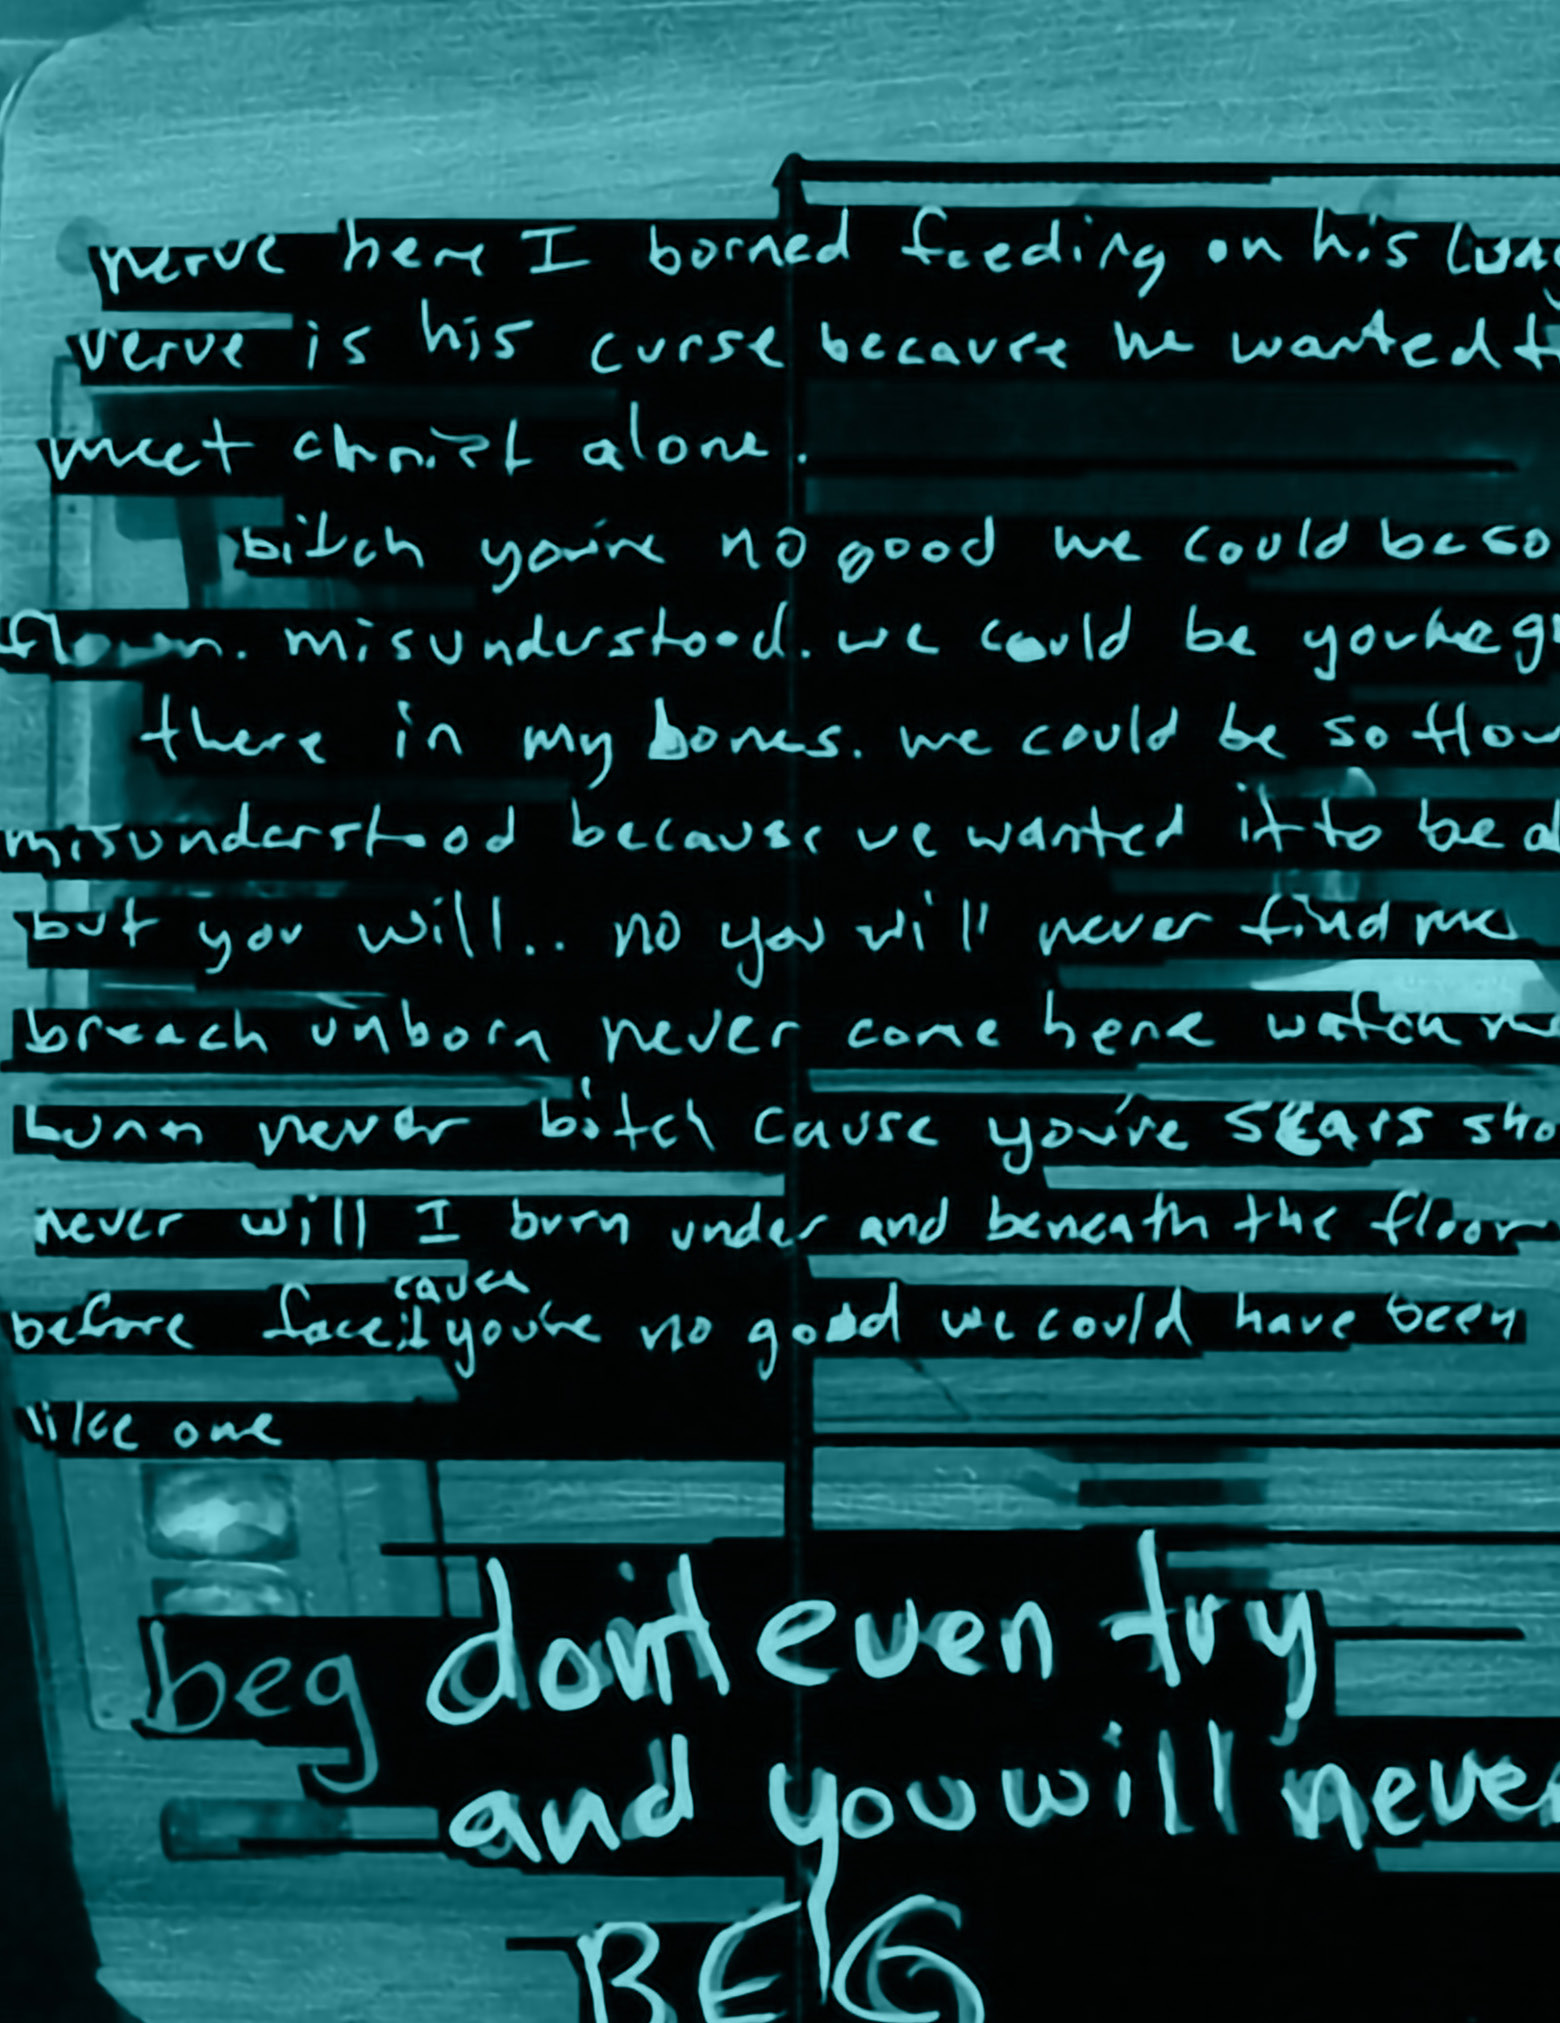 nerve here I borned feeding on his
verve is his curse because he wanted
meet christ alone.
bitch you're no good we could be so
misunderstood. we could be
there in my bones. we could be so
misunderstood because we wanted it to be
but you will.. no you will never find me
breach unborn never come here watch
never bitch cause you're scars
never will I burn under and beneath the floor
cause
before face it you're no good we could have been
like one
beg don't even try
and you will never
BEG